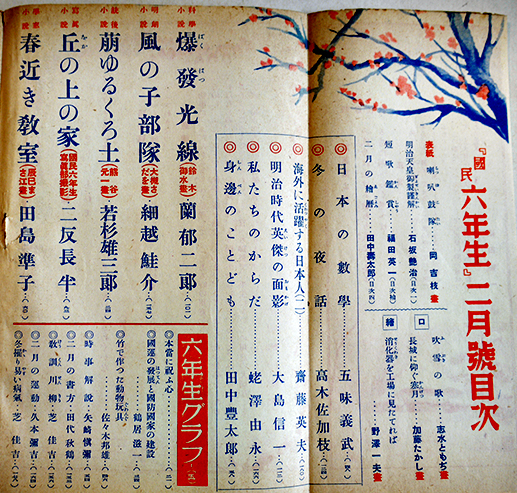 『國民六年生』二月號目次
表紙 喇叭鼓隊 岡 吉枝畫
明治天皇御製謹解 石坂艶治(目次四)
短歌鑑賞 福田英一(目次四)
二月の繪暦 田中壽太郎(目次四)
口繪
吹雪の歌 志水ともぢ畫
長城に仰ぐ寒月 加藤たかし畫
消化器を工場に見たてれば 野澤一夫畫
◎日本の數學 五味義武
◎冬の夜話 高木佐加枝
◎海外に活躍する日本人(二) 齋藤英夫
◎明治時代英傑の面影 大島信一
◎私たちのからだ 蛯澤由永
◎身邊のことども 田中豐太郎
科學小説 爆發光線 (鈴木御水畫) 蘭郁二郎
小説 風の子部隊 細越鮭介
銃後小説 萠ゆるくろ土 (熊谷元一畫) 若杉雄三郎
小説 丘の上の家 (國民六年生寫眞部撮影) 二反長半
小説 春近き教室 (辰巳まさ江畫) 田島準子
六年生グラフ
◎本當に祝ふ心
◎國運の發展と國防國家の建設 鶴居滋一
◎竹で作つた動物玩具 佐々木邦雄
◎時事解説 矢崎愼彌
◎二月の書方 田代秋鶴
◎教訓川柳 芝佳吉
◎二月の運動 久本彌吉
◎冬罹り易い病氣 芝佳吉